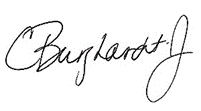 CBurghardt J